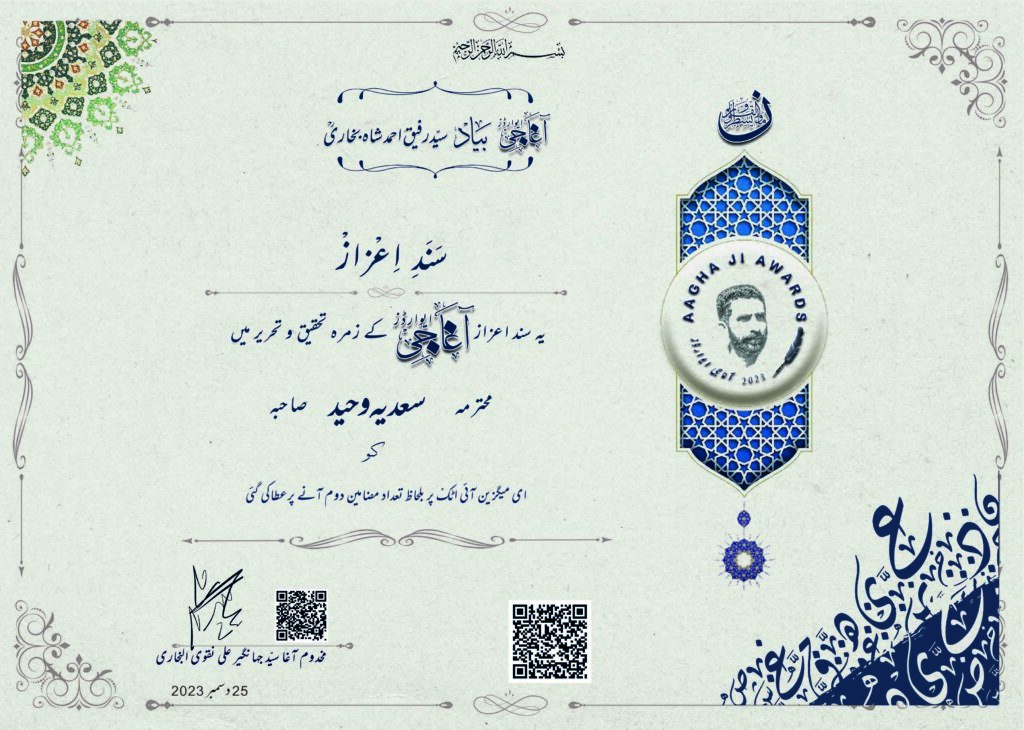 بسم اللہ الرحمن الرحیم
آغا جی ایوارڈز بیاد سیّد رفیق احمد شاہ بخاریؒ
سَنَدِ اِعْزازْ
یہ سند اعزاز آغا جی ایوارڈز کے زمرہ تحقیق و تحریر میں
محترمہ سعدیہ وحید صاحبہ
کو
ای میگزین آئی اٹک پر بلحاظ تعداد مضامین دوم آنے پر عطا کی گئی
مخدوم آغا سیّد جہانگیر علی نقوی البخاری
25 دسمبر 2023
ن والقلم وما یسطرون
AAGHA JI AWARDS
آغا جی ایوارڈز 2023